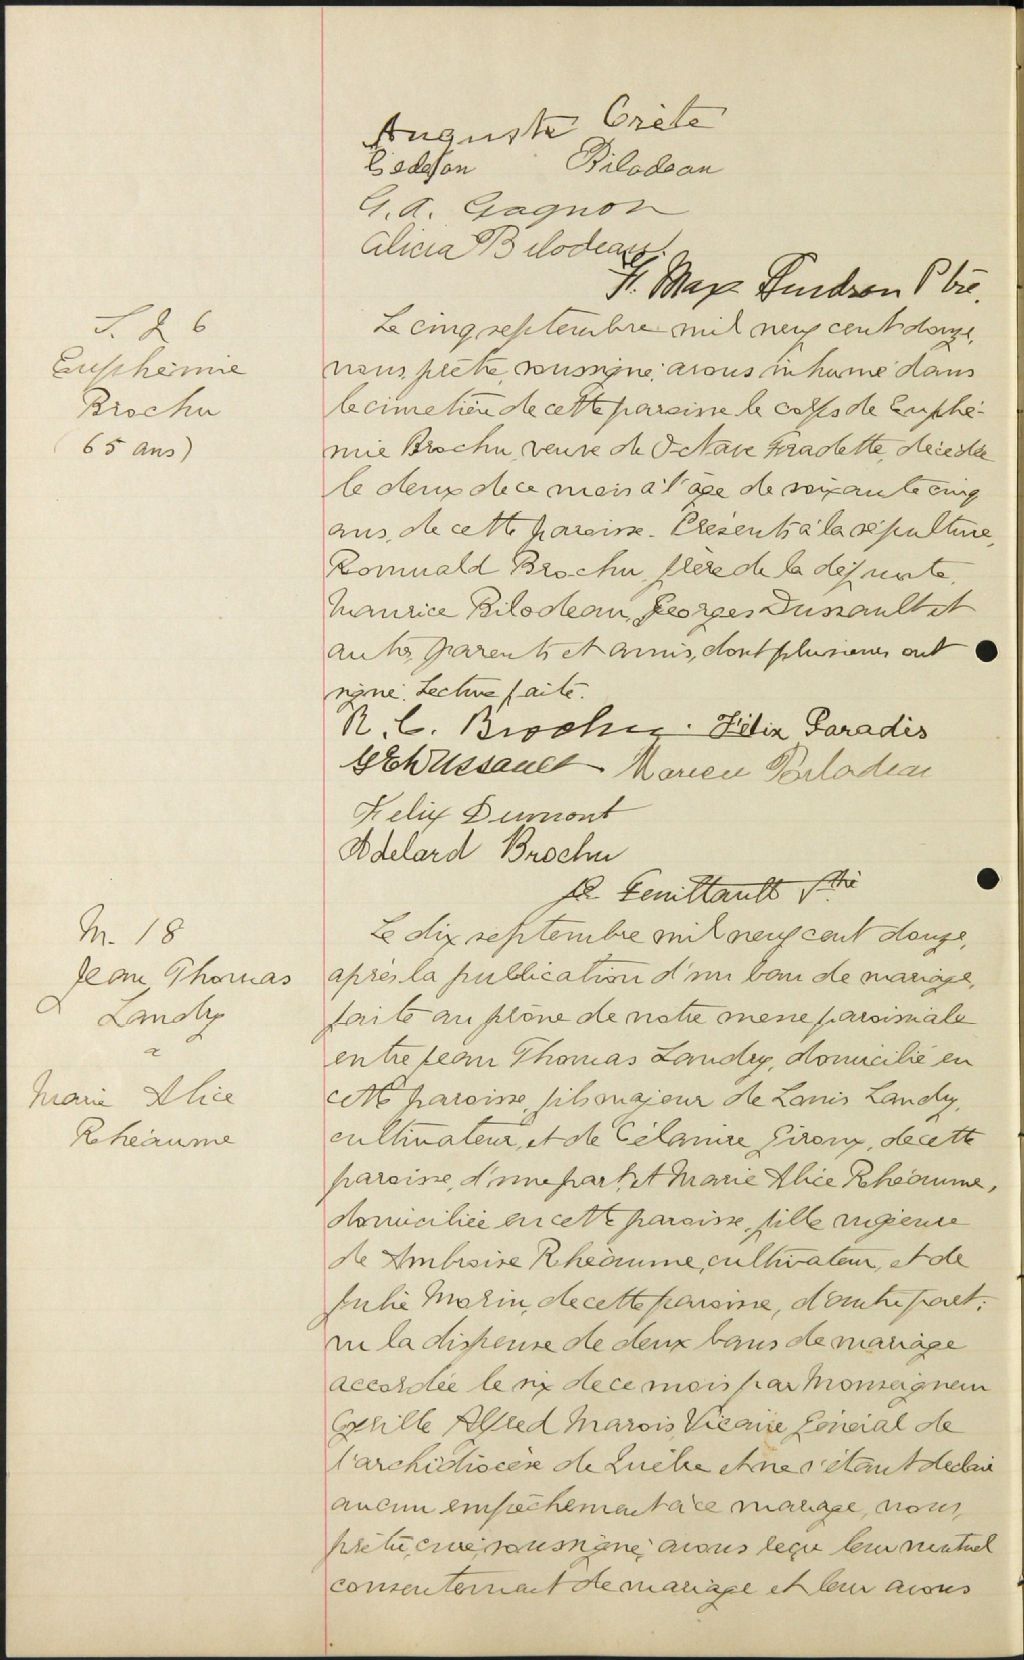 Auguste Crête
Gédéon Bilodeau
G. A. Gagnon
Alicia Bilodeau
F. Max Ptre.
S. 26
Euphémie
Brochu
(65 ans)
Le cinq septembre mil neuf cent douze,
nous, prêtre, soussigné, avons inhumé dans
le cimetière de cette paroisse le corps de Euphé-
mie Brochu, veuve de Octave Fradette, décédée
le deux de ce mois à l'âge de soixante cinq
ans, de cette paroisse. Présents à la sépulture,
Romuald Brochu, frère de la défunte,
Maurice Bilodeau, Georges Dussault et
autres parents et amis, dont plusieurs ont
signé. Lecture faite.
R. C. Brochu. Félix Paradis
G E Dussault
Felix Dumont
Adelard Brochu
ptre
M. 18
Jean Thomas
Landry
&
Marie Alice
Rhéaume
Le dix septembre mil neuf cent douze,
après la publication d'un ban de mariage,
faite au prône de notre messe paroissiale
entre Jean Thomas Landry, domicilié en
cette paroisse, fils majeur de Louis Landry,
cultivateur, et de Célanire Giroux, de cette
paroisse, d'une part, et Marie Alice Rhéaume,
domiciliée en cette paroisse, fille majeure
de Ambroise Rhéaume, cultivateur, et de
Julie Morin, de cette paroisse, d'autre part;
vu la dispense de deux bans de mariage
accordée le six de ce mois par Monseigneur
Cyrille Alfred Marois, Vicaire Général de
l'archidiocèse de Québec et ne s'étant déclaré
aucun empêchement à ce mariage, nous,
prêtre, curé, soussigné, avons reçu leur mutuel
consentement de mariage et leur avons